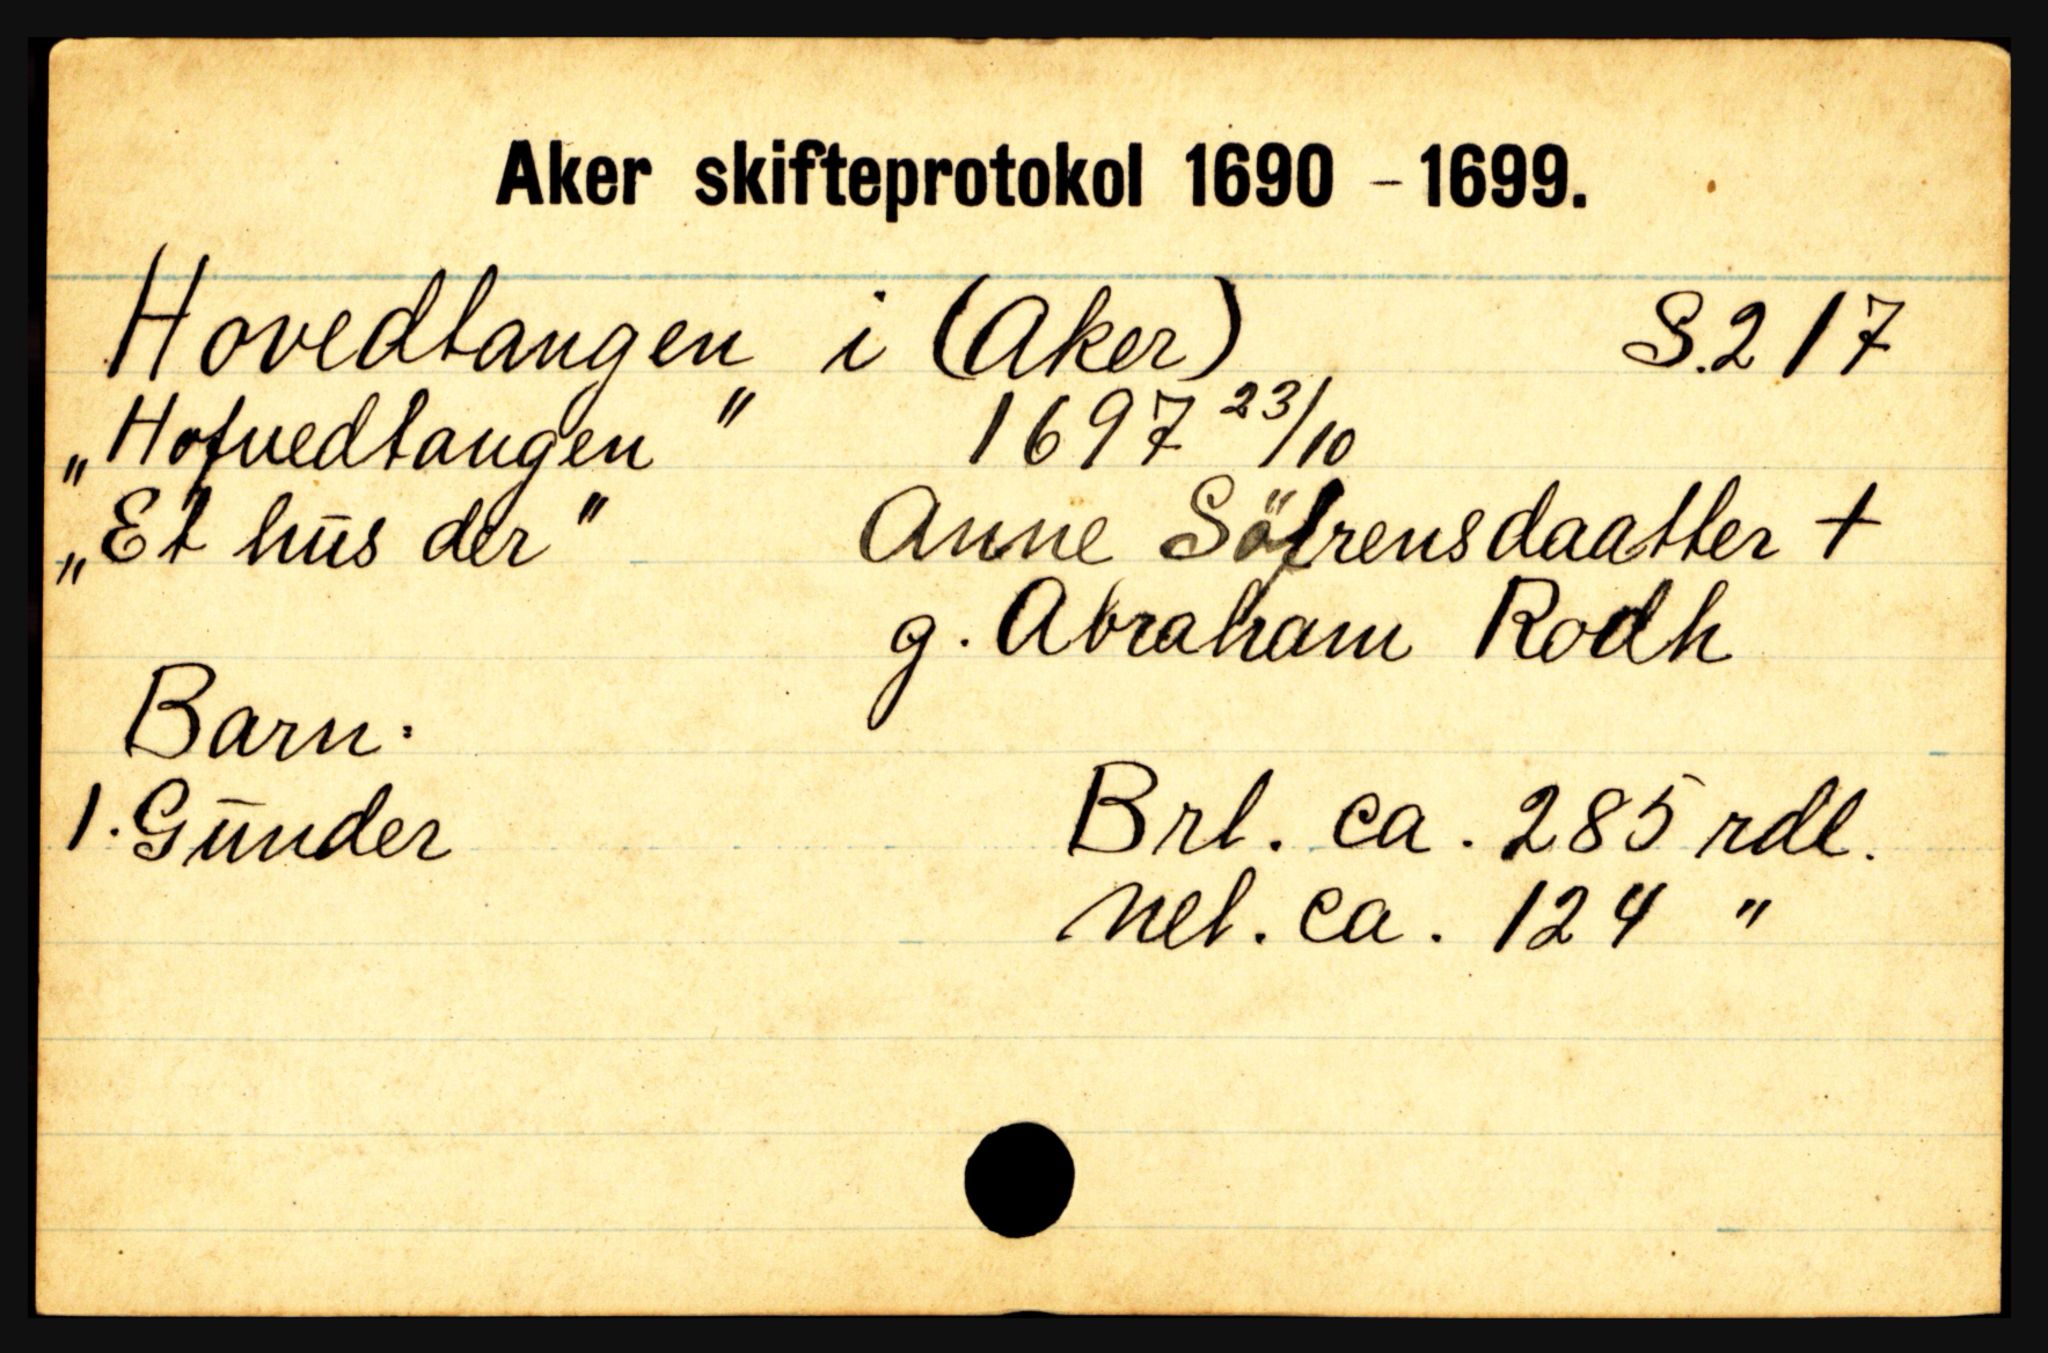 Aker skifteprotokol 1690 - 1699.
Hovedtangen i (Aker) S. 217
„Hofvedtangen" 1697 23/10
„Et hūs der" Anne Söfrensdaatter +
g. Abraham Rodh
Barn:
1. Gūnder Brt. ca. 285 rdl.
Net. ca. 124 "